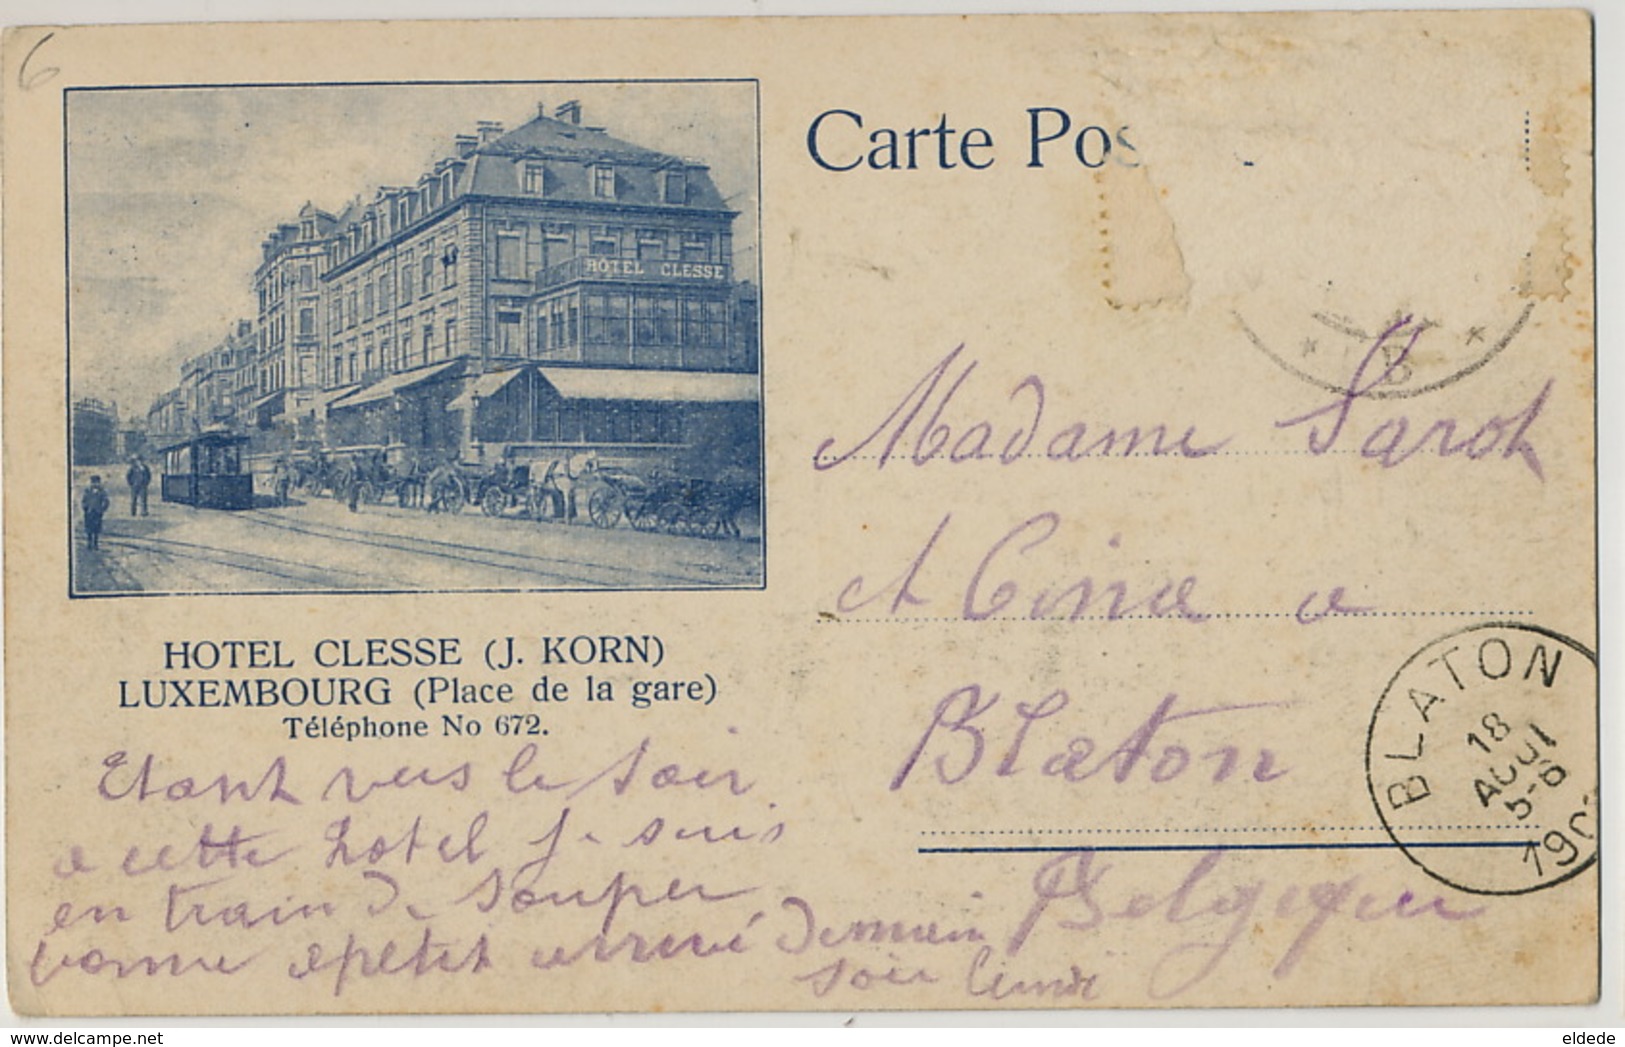 6
Carte Pos
HOTEL CLESSE
HOTEL CLESSE (J. KORN)
LUXEMBOURG (Place de la gare)
Téléphone No 672.
Etant vers le soir
a cette hotel je suis
en train de souper
bonne apetit arrivé Demain
soir lundi
Madame Sarot
et
a
Blaton
Belgique
* B *
BLATON
18
AOUT
5-6
190
eldede
delcampe.net